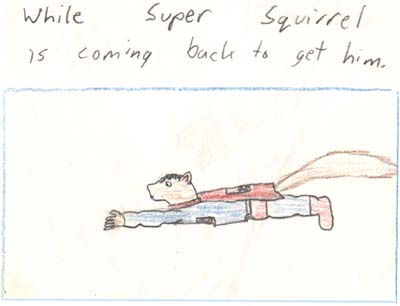 While Super Squirrel
is coming back to get him.